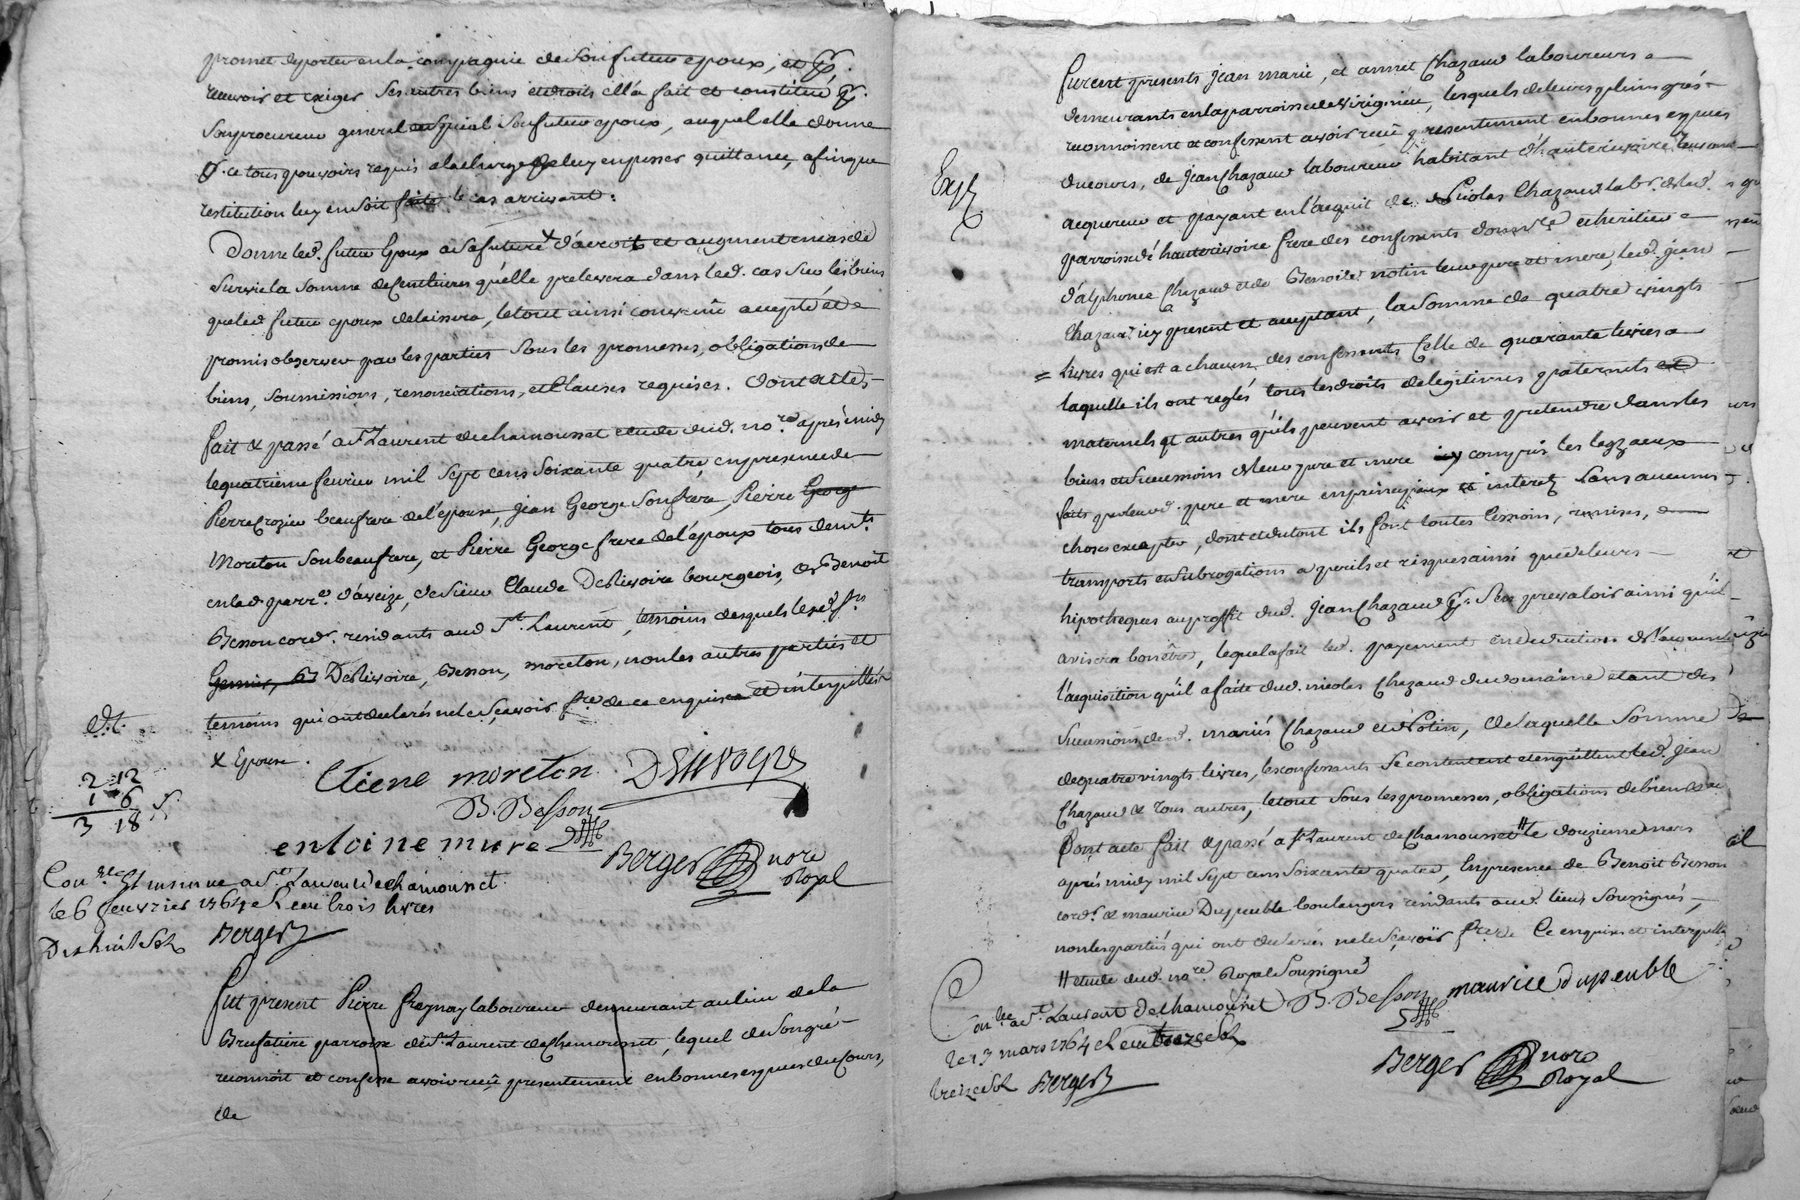 promet deporter en la compagnie de son futur epoux, et pr.
recevoir et exiger ses autres biens et droits ell'a fait et constitué pr.
son procureur general et special son futur epoux, auquel elle donne
pr. ce tous pouvoirs requis a la charge de luy en passer quittance, afin que
restitution luy en soit faite le cas arrivant.
Donne led. futur Epoux a sa future x d'accroit et augment en cas de
survie la somme de cent livres qu'elle prelevera dans led. cas sur les biens
que led futur epoux delaissera, le tout ainsi convenu accepté et
promis observer par les parties sous les promesses, obligations de
biens, soumissions, renonciations, et Clauses requises. Dont acte
fait & passé a St. Laurent de chamousset etude dud. nore. après midy
le quatrieme fevrier mil sept cens soixante quatre, en presence de
Pierre Crozier beaufrere de l'epouse, jean George son frere, Pierre George
Moreton son beaufrere, et Pierre George frere de l'epoux tous demts.
en lad. parre. d'aveize, de sieur Claude Desrivoire bourgeois, & Benoit
Besson cord. residants aud St. Laurent, temoins desquels les
Desrivoire, Besson, moreton, non les autres parties et
temoins qui ont declarés ne le sçavoir fre. de ce enquis et interpellés
x Epouse.
Etiene moreton
B. Besson
entoine mure
Berger nore Royal
2 12
1 6
3 18 s.
Con.lle Et insinué a St. Laurent de chamousset
le 6 feuvrier 1764 Receu trois livres
Dixhuit sols Berger
Fut present Pierre laboureur demeurant au lieu de la
parroisse de St. Laurent de Chamousset, lequel de son gré
reconnoit et confesse avoir reçu presentement en bonnes especes du cours,
de
furent presents jean marie, et annet Chazaud laboureurs
demeurants en la parroisse de virigneu, lesquels de leurs pleins grés
reconnoissent et confessent avoir reçu presentement en bonnes especes
du cours, de jean Chazaud laboureur habitant d'hauterivoire,
acquereur et payant en l'acquit de Nicolas Chazaud labr. de lad.
parroisse d'hauterivoire frere des confessants donnre. et heritier
d'alphonce Chazaud et de Benoite notin leur pere et mere, led. jean
Chazaud icy present et acceptant, la somme de quatre vingts
livres qui est a chacun des confessants Celle de quarante livres a
laquelle ils ont reglés tous les droits de legitimes paternels et
maternels et autres qu'ils peuvent avoir et pretendre dans les
biens et successions de leur pere et mere y compris les legs a eux
faits par leurd. pere et mere en principaux et interets sans aucunes
choses excepter, dont et du tout ils font toutes cessions, remises,
transports et subrogations a perils et risques ainsi que de leurs
hipotheques au proffit dud. jean Chazaud pr. s'en prevaloir ainsi qu'il
avisera bon être, lequel a fait led. payement en deduction de
l'acquisition qu'il a faite dud. nicolas Chazaud du domaine etant des
successions desd. mariés Chazaud et Notin, de laquelle somme
de quatre vingts livres, les confessants se contentent et en quittent led. jean
Chazaud & tous autres, le tout sous les promesses, obligations de biens &c
Dont acte fait & passé a St. Laurent de Chamousset # le douzieme mars
après midy mil sept cens soixante quatre, En presence de Benoit Besson
cord. & maurice Dupeuble boulangers residants aud. lieu, soussignés,
non les parties qui ont declarés ne le sçavoir fre. de Ce enquises et interpellé
# etude dud. nore. Royal soussigné
B. Besson maurice dupeuble
Con.lle a St. Laurent de chamousset
le 13 mars 1764 Receu treize sols
treize sols Berger
Berger nore Royal